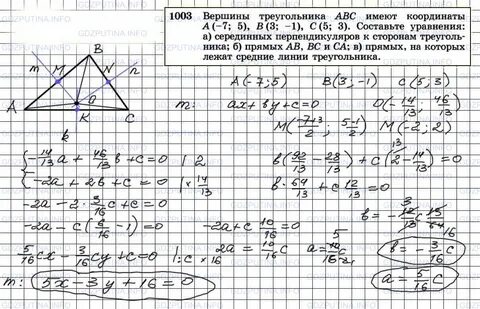 1003 Вершины треугольника ABC имеют координаты
A (−7; 5), B (3; −1), C (5; 3). Составьте уравнения:
а) серединных перпендикуляров к сторонам треуголь-
ника; б) прямых AB, BC и CA; в) прямых, на которых
лежат средние линии треугольника.
A(-7;5) B(3;-1) C(5,3)
m: ax+by+c=0 O(-14/13; 46/13)
M(-7+3/2; 5-1/2) M(-2; 2)
B
m M N n
O
A K C
k
{-14/13a + 46/13b + c = 0 | 2
-2a + 2b + c = 0 | × 14/13
b(92/13 - 28/13) + c(2 - 14/13) = 0
b · 64/13 + c 12/13 = 0
-2a - 2 · 3/16c + c = 0
-2a - c(6/16 - 1) = 0
-2a + c 10/16 = 0
2a = 10/16 c
b = - 3/16 c
a = 5/16 c
5/16 cx - 3/16 cy + c = 0 | : c × 16
m: 5x - 3y + 16 = 0